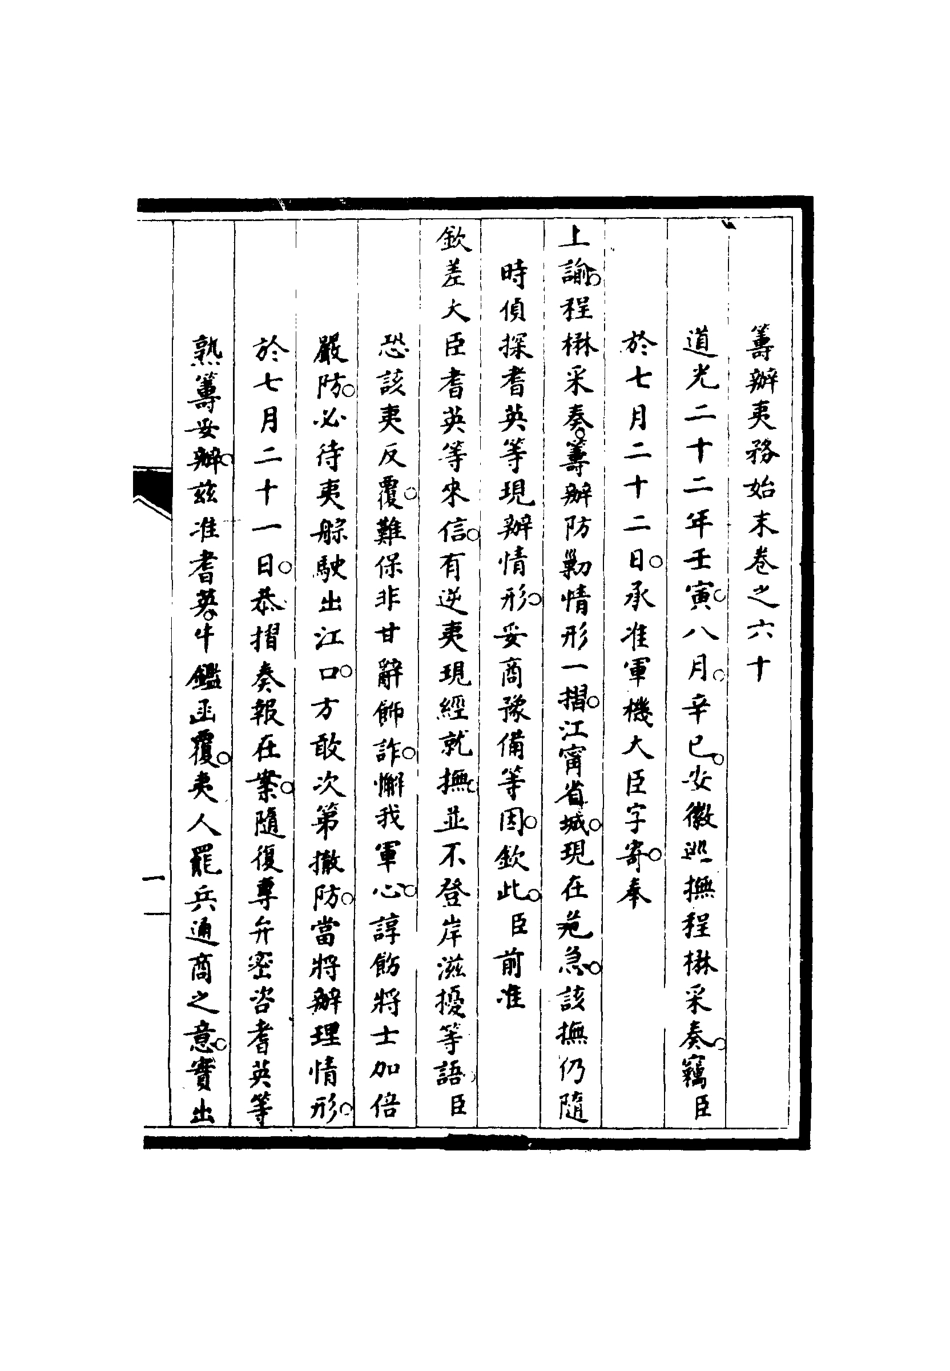 籌辦夷務始末卷之六十
道光二十二年壬寅。八月。辛巳。安徽巡撫程楙采奏。竊臣
於七月二十二日。承准軍機大臣字寄。奉
上諭。程楙采奏。籌辦防勦情形一摺。江甯省城。現在危急。該撫仍隨
時偵探耆英等現辦情形。妥商豫備等因。欽此。臣前准
欽差大臣耆英等來信。有逆夷現經就撫。並不登岸滋擾等語。臣
恐該夷反覆。難保非甘辭飾詐。懈我軍心。諄飭將士加倍
嚴防。必待夷艅駛出江口。方敢次第撤防。當將辦理情形。
於七月二十一日。恭摺奏報在案。隨復專弁密咨耆英等
熟籌妥辦。茲准耆英。牛鑑函覆。夷人罷兵通商之意。實出
一